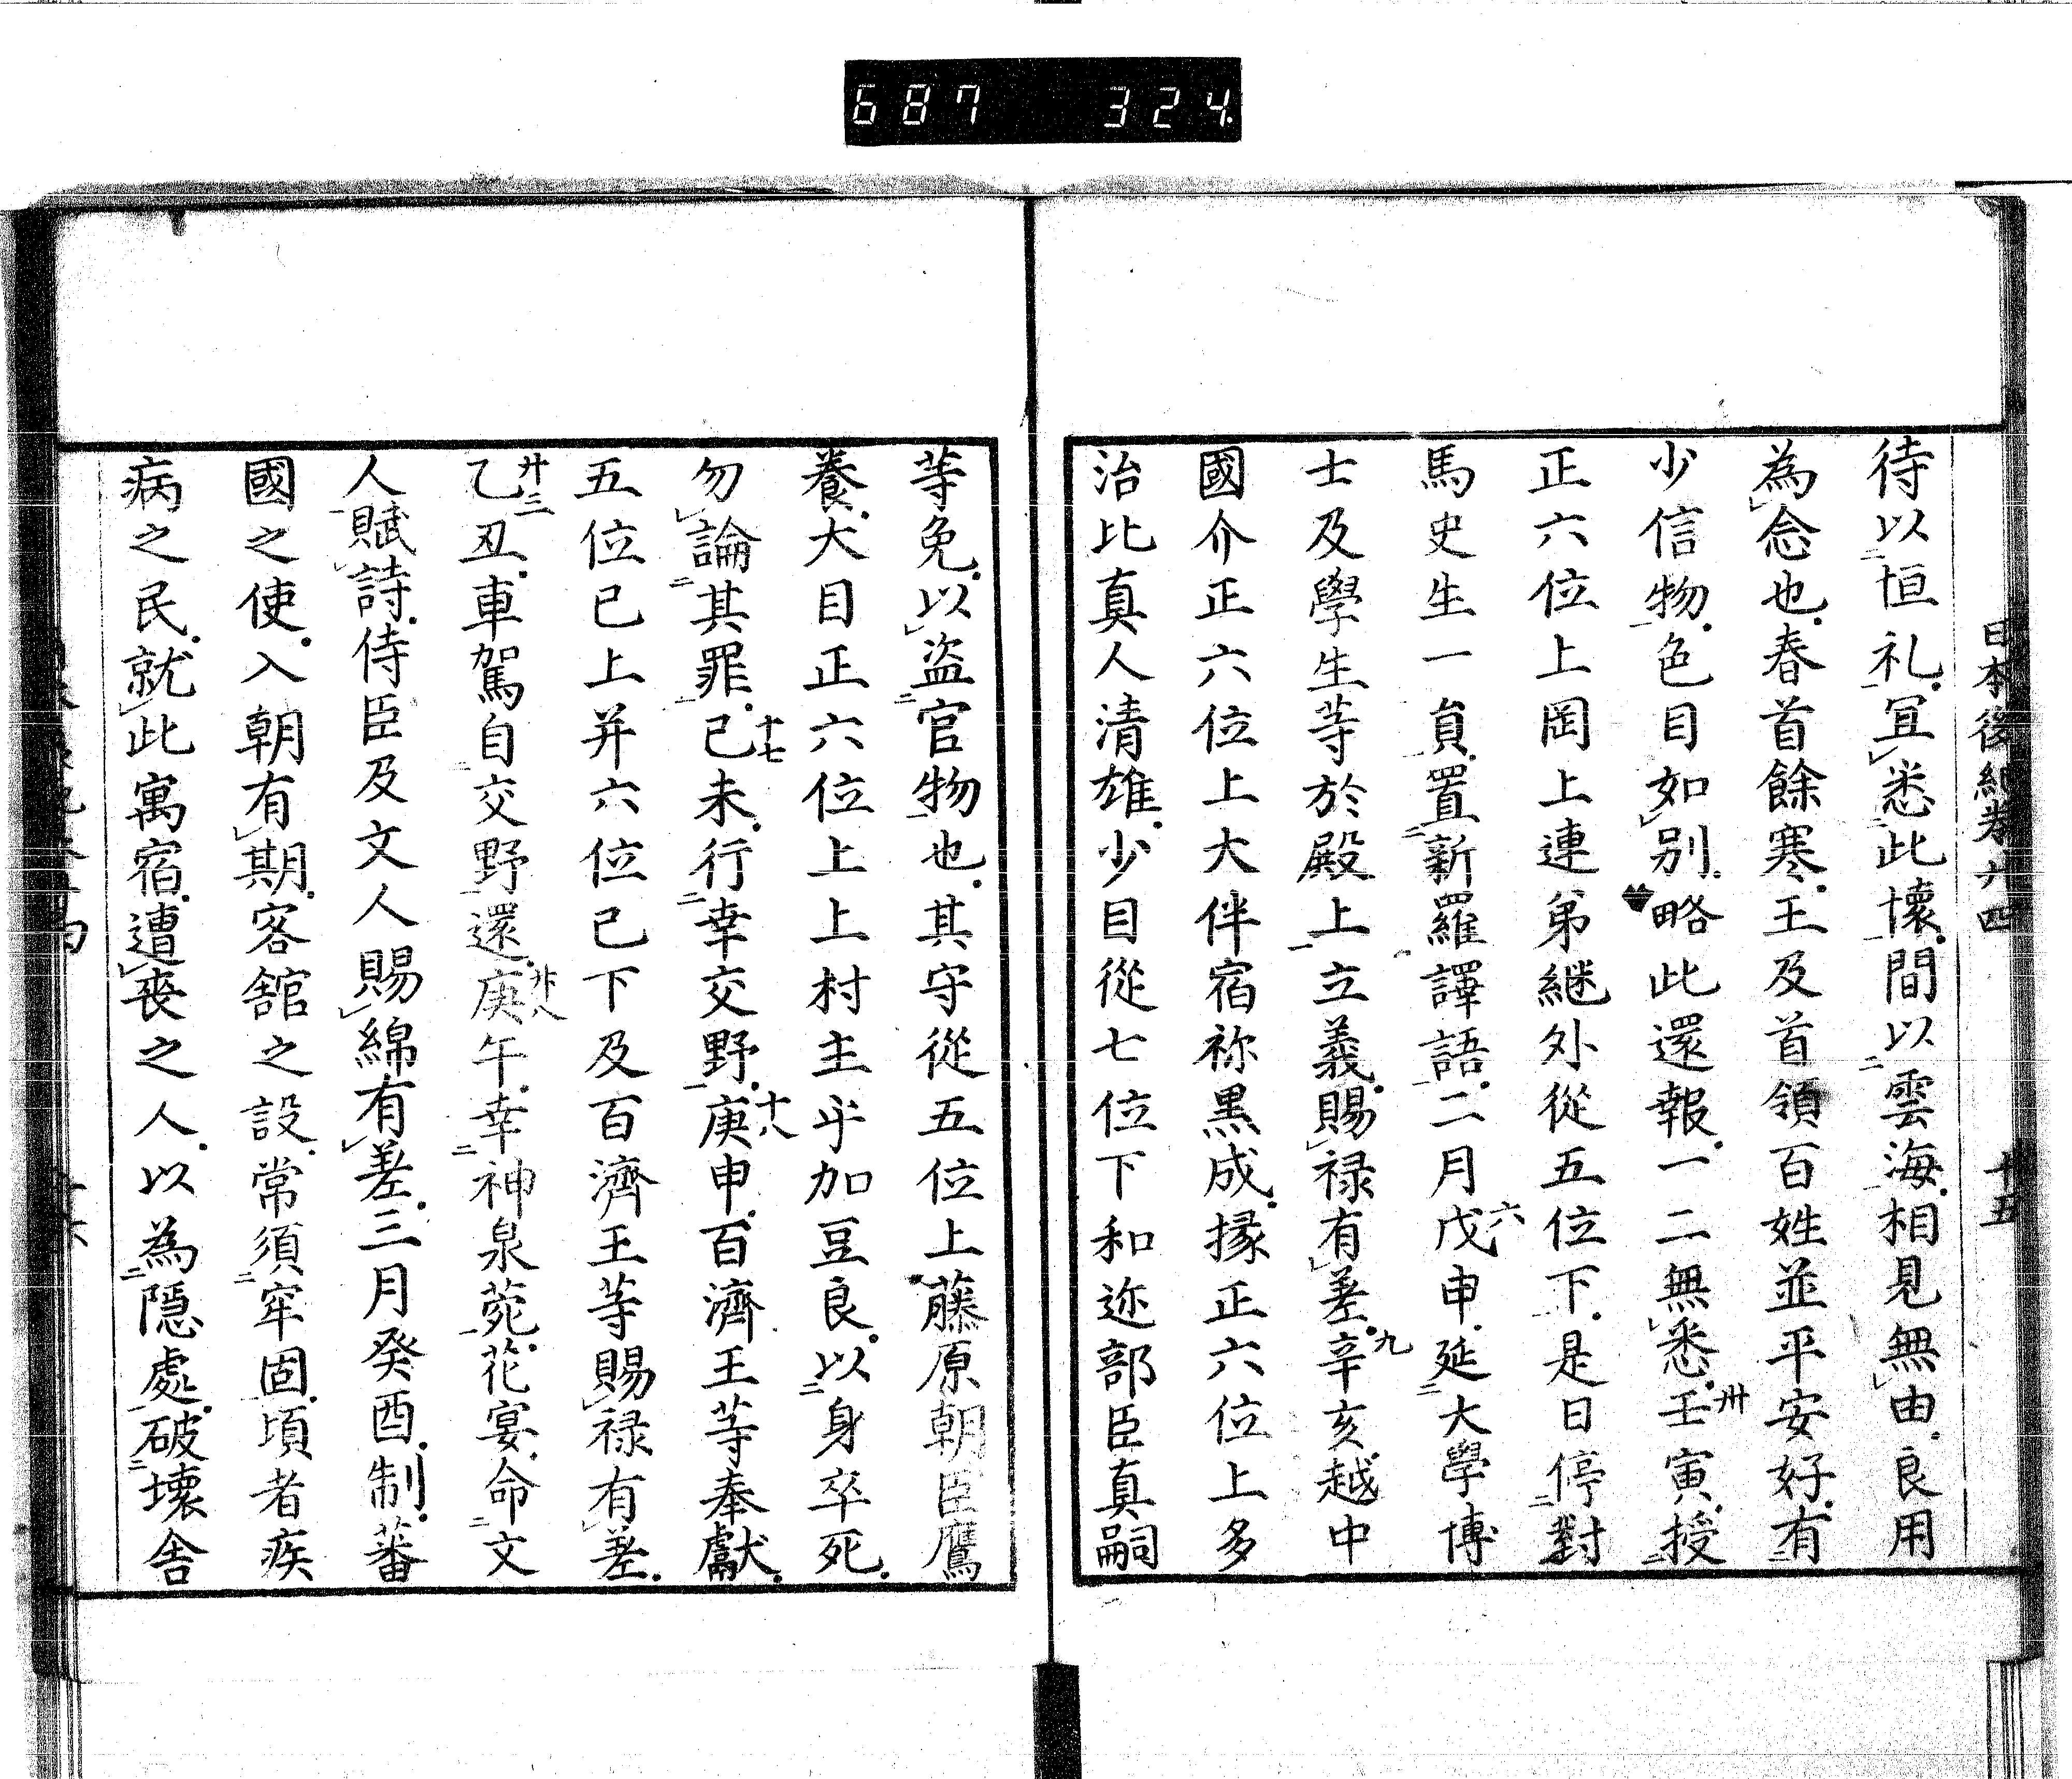 687 324
日本後紀卷廿四 十五
待以恒礼冝悉此懷間以雲海相見無由良用
為念也春首餘寒王及首領百姓並平安好有
少信物色目如別略此還報一二無悉壬寅授
正六位上罡上連第継外從五位下是日停對
馬史生一負置新羅譯語二月戊申延大學博
士及學生等於殿上立義賜禄有差辛亥越中
國介正六位上大伴宿祢黒成掾正六位上多
治比真人清雄少目從七位下和迩部臣真嗣
等免以盗官物也其守從五位上藤原朝臣鷹
養大目正六位上上村主乎加豆良以身卒死
勿論其罪己未行幸交野庚申百濟王等奉獻
五位已上并六位已下及百濟王等賜禄有差
乙丑車駕自交野還庚午幸神泉菀花宴命文
人賦詩侍臣及文人賜綿有差三月癸酉制蕃
國之使入朝有期客舘之設常須牢固頃者疾
病之民就此寓宿遭喪之人以為隠處破壞舎